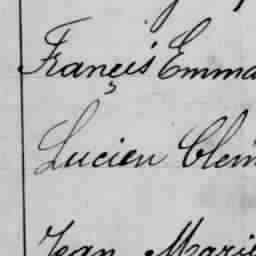 Françis Emma
Lucien Clem
Jean Marie